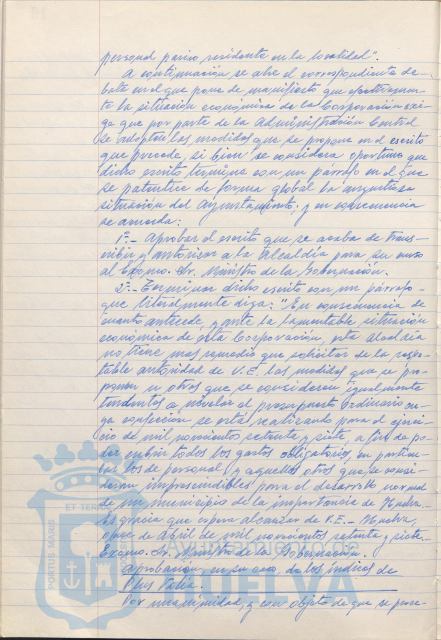 personal pasivo residente en la localidad".
A continuación se abre el correspondiente de-
bate en el que pone de manifiesto que efectivamen-
te la situación económica de la Corporación exi-
ge que por parte de la Administración Central
se adopten las medidas que se propone en el escrito
que precede, si bien se considera oportuno que
dicho escrito termine con un párrafo en el que
se patentice de forma global la angustiosa
situación del Ayuntamiento, y en consecuencia
se acuerda:
1º.- Aprobar el escrito que se acaba de trans-
cribir y autorizar a la Alcaldía para su curso
al Excmo. Sr. Ministro de la Gobernación.
2º.- Terminar dicho escrito con un párrafo
que literalmente diga: "En consecuencia de
cuanto antecede, y ante la lamentable situación
económica de esta Corporación, esta Alcaldía
no tiene mas remedio que solicitar de la respe-
table autoridad de V.E. las medidas que se pro-
ponen u otras que se consideren igualmente
tendentes a nivelar el presupuesto ordinario cu-
ya confección se está realizando para el ejerci-
cio de mil novecientos setenta y siete, a fin de po-
der cubrir todos los gastos obligatorios, en particu-
lar los de personal y aquellos otros que se consi-
deran imprescindibles para el desarrollo normal
de un municipio de la importancia de Huelva.
Es gracia que espera alcanzar de V.E.- Huelva,
de Abril de mil novecientos setenta y siete.
Excmo. Sr. Ministro de la Gobernación.
Aprobación, en su caso, de los índices de
Plus Valía.
Por unanimidad, y con objeto de que se pue-
PORTUS MARIS
ET TERRAE
HUELVA